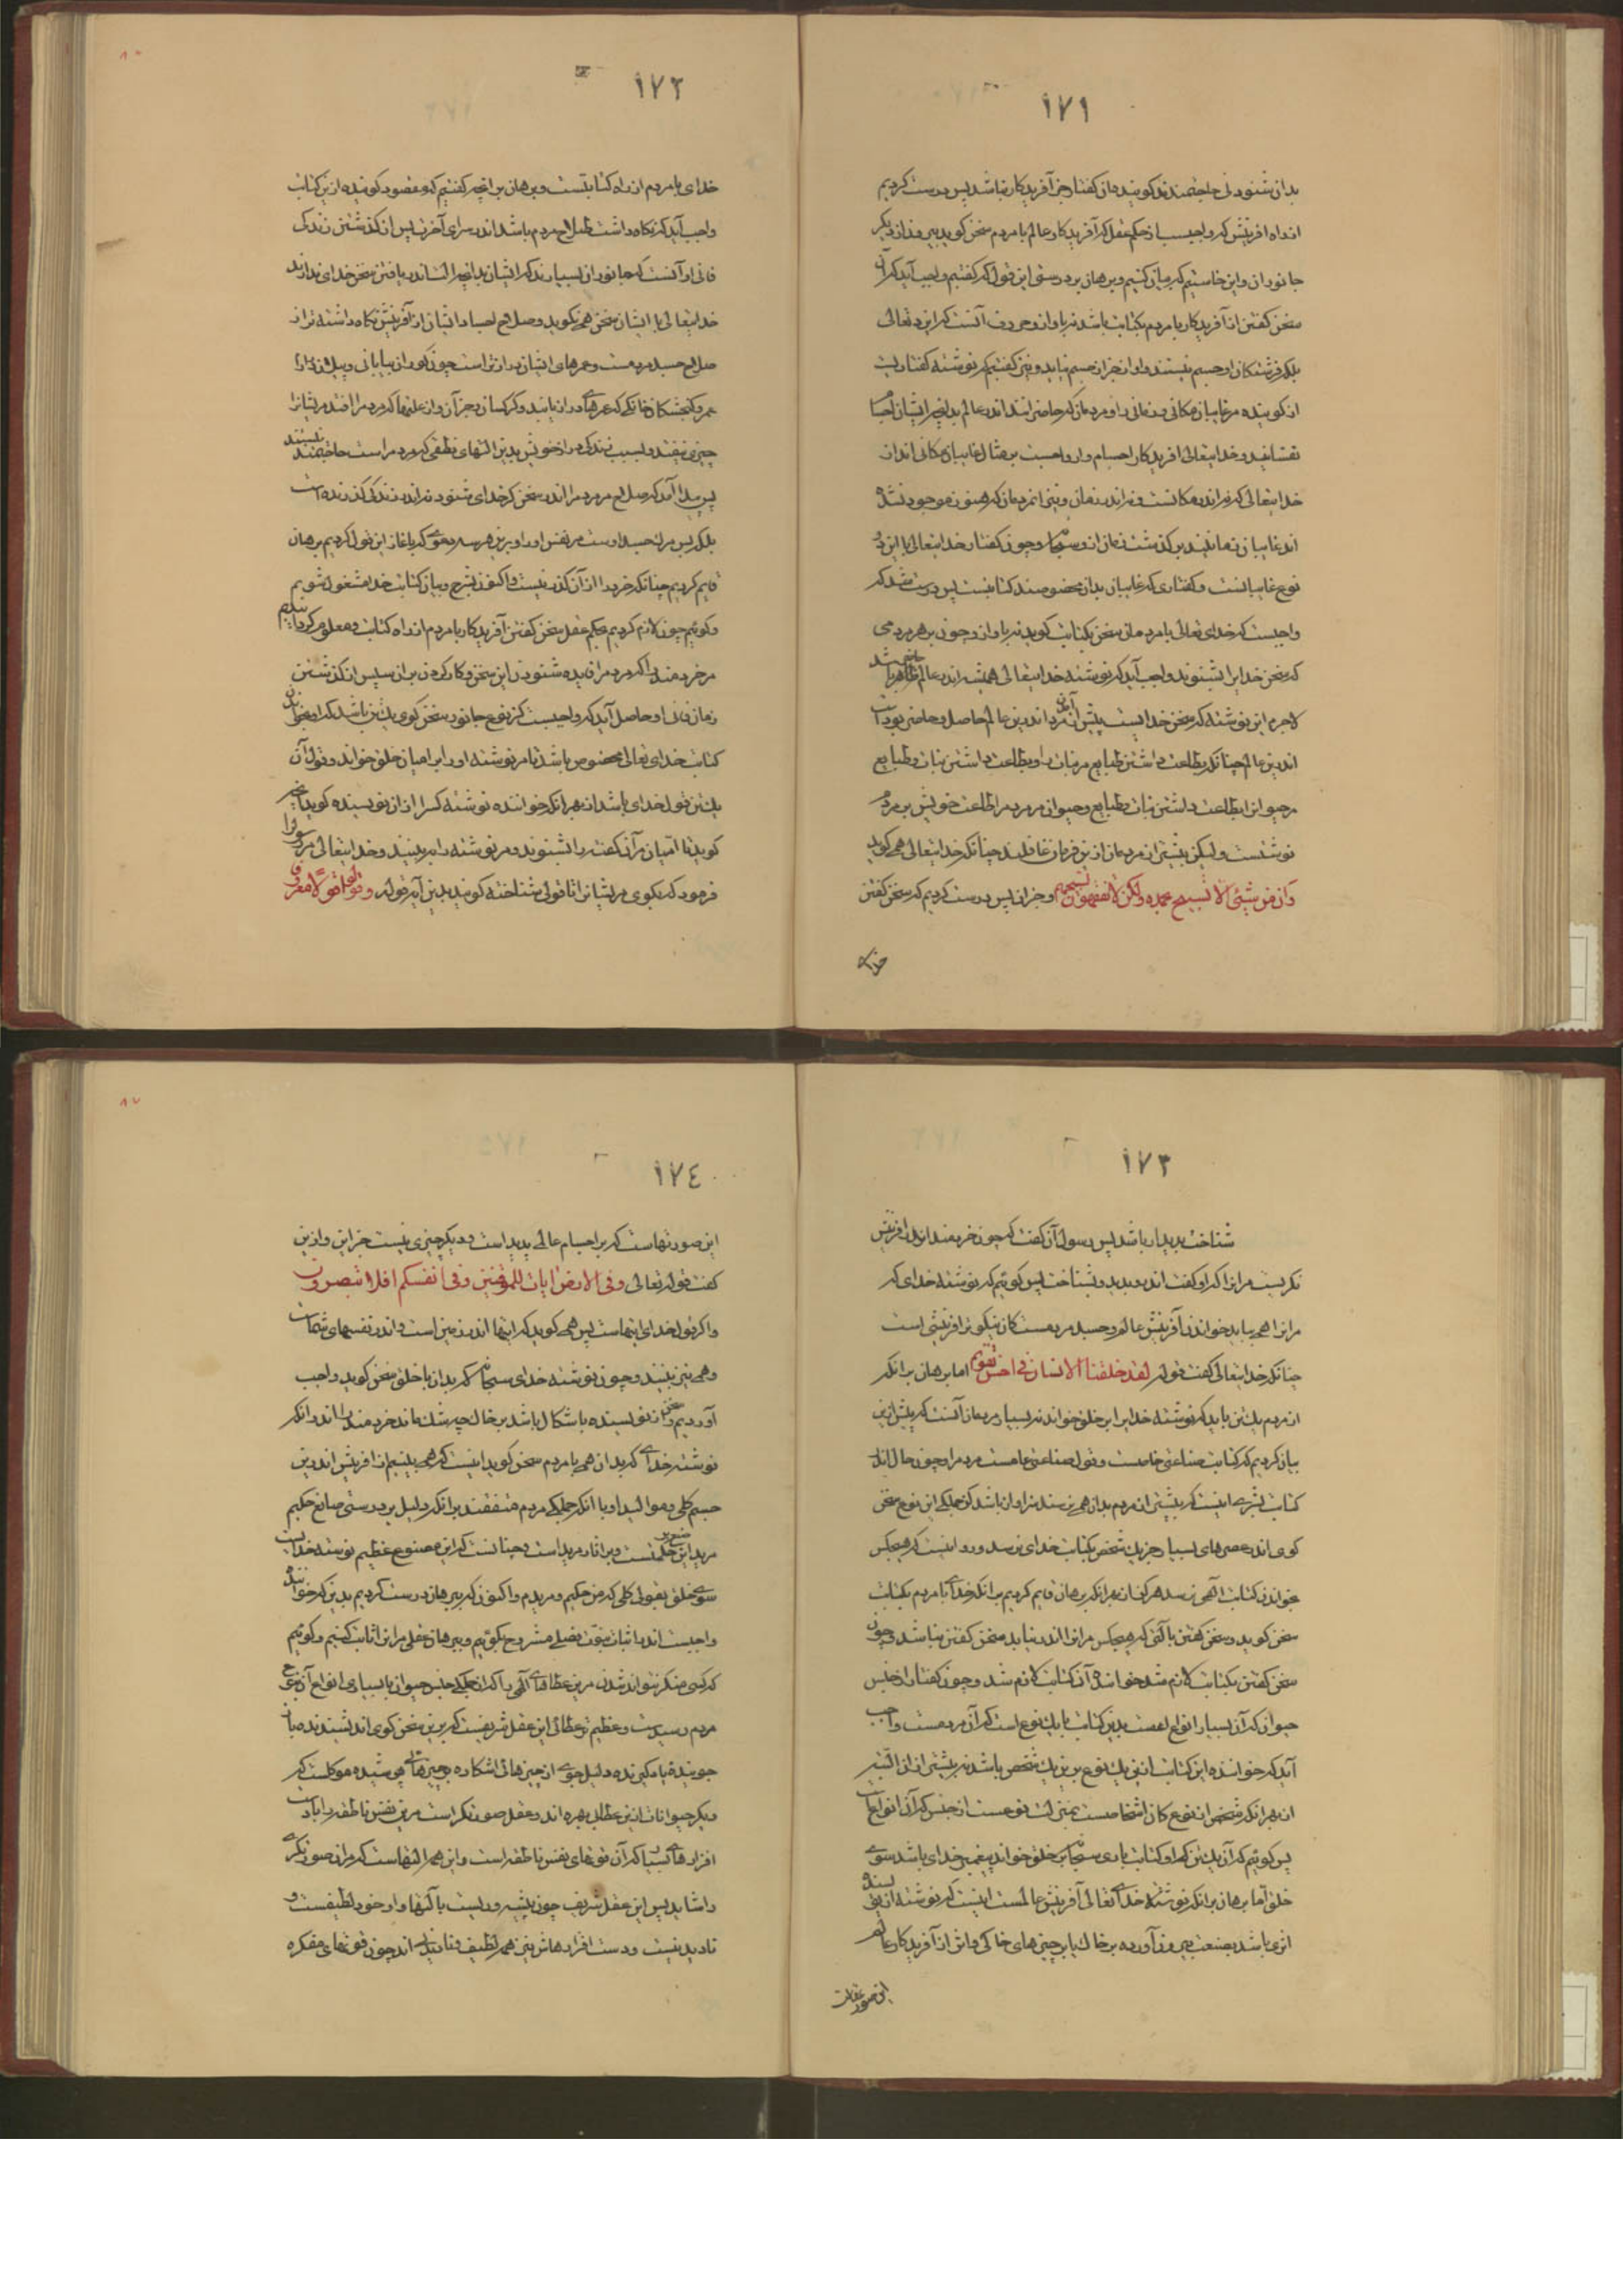 ١٧١
بدان شنودنی حاجتمندند کویند مان کفتار جز آفریدکار نباشد پس درست کردیم
از راه آفرینش که واجبست از حکم عقل که آفریدکار عالم با مردم سخن کوید بیرون از دیکر
جانوران و این خاستیم که بیان کنیم و برهان بر درستی این قول که کفتیم واجب آید که آن
سخن کفتن از آفریدکار با مردم بکتابت باشد نه باواز و حروف آنست که ایزد تعالی
بلکه فرشتکان او جسم نیستند و آواز جز از جسم نیاید و نیز کفتیم که نوشته کفتاریست
از کوینده مر غایبان مکانی و زمانی را و مردمان که حاضر انند اندر عالم بدانچه ایشان اجسا
نفسانیند و خدایتعالی آفریدکار اجسام و ارواحست بر مثال غایبان مکانی اند از
خدایتعالی که نه اندر مکانست و نه اندر زمان و نیز مردمان که هنوز موجود نشده
اند غایبان زمانیند بر کذشت زمان از و سبحانه و چون کفتار خدایتعالی با این دو
نوع غایبانست و کفتاری که غایبان بدان مخصوصند کتابتست پس درست شد که
واجبست که خدای تعالی با مردمان سخن بکتابت کوید نه باواز و چون بر هر مردمی
که سخن خدایرا بشنوند واجب آید که نوشته خدایتعالی همیشه اندر عالم ظاهر باشد
لاجرم این نوشته که سخن خدایست پیش از مرد اندرین عالم حاصل و حاضر بودست
اندرین عالم چنانکه بطاعت داشتن طبایع مر نبات را و بطاعت داشتن نبات و طبایع
مر حیوانرا بطاعت داشتن نبات و طبایع و حیوان مر مردم را طاعت خویش بر مردم
نوشتست ولیکن بیشتر از مردمان ازین فرمان غافلند چنانکه خدایتعالی همی کوید
وان من شیئی الا یسبح بحمده ولکن لا تفقهون تسبیحهم و جز آن پس درست کردیم که سخن کفتن
خدای
١٧٢
خدای با مردم از راه کتابتست و برهان بر آنچه کفتیم که مقصود کوینده ازین کتابت
واجب آید که نکاه داشت صلاح مردم باشد اندر سرای آخرت پس از کذشتن زندکی
فانی او آنست که جانوران بسیارند که ایشان بدانچه النها اندر یافتن سخن خدای ندارند
خدایتعالی با ایشان سخن همی نکوید و صلاح اجساد ایشان از آفرینش نکاه داشته تر از
صلاح جسد مردمست و عمرهای ایشان درازتر است چون کوران بیابانی و پیلان دراز
عمر و کنجشکان خانکی که عمرهای دراز یابند و کرکسان و جز آن و از علتها که مردم را افتد مر ایشانرا
چیزی نیفتد و بسبب زندکی مر خویش بدین التهای نطقی که مردم راست حاجتمند نیستند
پس پیدا آمد که صلاح مر مردم را اندر سخن کز خدای شنود نه اندر زندکی کذرنده است
بلکه پس مرک جسد اوست مر نفس او را و برین هر سه دعوی که باغاز این قول کردیم برهان
قایم کردیم چنانکه خرد را از آن کذر نیست و اکنون بشرح و بیان کتابت خدا مشغول شویم
و کوئیم چون لازم کردیم بحکم عقل سخن کفتن آفریدکار با مردم از راه کتابت و معلوم کردانیدیم
مر خردمند را که مر مردم را فایده شنودن این سخن و کار کردن بر آن سپس از کذشتن
زمان فنای او حاصل آید که واجبست کز نوع جانور سخن کوی یک تن باشد که او بخواندن
کتابت خدای تعالی مخصوص باشد تا مر نوشته او را بر امیان خلق خواند و قول آن
یک تن قول خدای باشد از بهر آنکه خواننده نوشته کسرا از آن نویسنده کوید آنچه
کوید تا امیان مر آن کفته را بشنوند و مر نوشته را می‌بینند و خدایتعالی مر رسول را
فرمود که بکوی مر ایشانرا تا قولی شناخته کویند بدین آیه قوله وقولوا قولًا معروفا
١٧٣
شناخت پدیدار باشد پس رسول آن کفت که چون خردمند اندر آفرینش
نکریست مر آنرا که او کفت اندرو بدید و بشناخت پس کوئیم که نوشته خدای که
مر آنرا همی بباید خواندن آفرینش عالم و جسد مردمست کان نیکوتر آفرینشی است
چنانکه خدایتعالی کفت قوله لقد خلقنا الانسان فی احسن تقویم اما برهان بر آنکه
از مردم یک تن باید که نوشته خدایرا بر خلق خواند نه بسیار مردمان آنست که پیش ازین
بیان کردیم که کتابت صناعتی خاصست و قول صناعتی عامست مردم را و چون حال اندر
کتابت بشری اینست که بیشتر از مردم بدان همی نرسند سزاوار باشد کز جملکی این نوع سخن
کوی اندر عصرهای بسیار جز یک شخص بکتابت خدای نرسد و روا نیست که هیچکس
بخواندن کتابت الهی نرسد هر کز از بهر آنکه برهان قایم کردیم بر آنکه خدای با مردم بکتابت
سخن کوید و سخن کفتن با کسی که هیچکس مر آنرا اندر نیابد سخن کفتن نباشد و چون
سخن کفتن بکتابت لازم شد خواننده آن کتابت لازم شد و چون کفتار از جنس
حیوان که آن بسیار انواع است بدین کتابت با یک نوع است که آن مردمست واجب
آید که خواننده این کتابت ازین یک نوع برین یک شخص باشد نه بیشتر از آن البته
از بهر آنکه شخص از نوع کان اشخاصست بمنزلت نوعست از جنس که آن انواعست
پس کوئیم که آن یک تن که او کتابت باری سبحانه بر خلق خواند پیغمبر خدای باشد سوی
خلق اما برهان بر آنکه نوشته خدای تعالی آفرینش عالمست اینست که نوشته از نویسنده
اثری باشد بصنعت بیرون آورده بر خاک یا بر چیزهای خاکی و اثر از آفریدکار عالم
این صورتهاست
١٧٤
این صورتهاست که بر اجسام عالم پدید است و دیکر چیزی نیست جز این و ازین
کفت قوله تعالی وفی الارض ایات للموقنین وفی انفسکم افلا تبصرون
و اکر قول خدای اینهاست پس همی کوید که اینها اندر زمین است و اندر نفسهای شماست
و همی نبینند و چون نوشته خدای سبحانه که بدان با خلق سخن کوید واجب
آوردیم و سخن از نویسنده باشکال باشد بر خاک چه شک ماند خردمند را اندر آنکه
نوشته خدای که بدان همی با مردم سخن کوید اینست که همی بینیم از آفرینش اندرین
جسم کلی و موالید او با آنکه جملکی مردم متفقند بر آنکه دلیل بر درستی صانع حکیم
مرید این حکمتست و بر آثار مرید است و چنانست که این مصنوع عظیم نوشته خدایست
سوی خلق بقول کلی که من حکیم و مریدم و اکنون که ببرهان درست کردیم بدین که خواننده
واجبست اندر اثبات نبوت فصلی مشروح بکوئیم و ببرهان عقلی مر آنرا اثبات کنیم و کوئیم
که کسی منکر نتواند شدن مرین عطای الهی را که از جملکی جنس حیوان با بسیاری انواع آن بنوع
مردم رسیدست و عظیم‌تر عطائی این عقل شریفست که برین سخن کوی اندر نشستند میان
جوینده تا مکی نده دلیل جوی از چیزهای آشکاره بر چیزهای پوشیده موکلست که
دیکر حیوانات ازین عطا بی بهره اند و عقل صورتکر است مرین نفس ناطقه را با دست
افزارهای بسیار که آن قوتهای نفس ناطقه است و این همه التهاست که مر آن صورتکری
را شاید پس این عقل شریف چون پیشه وریست با آلتها و او خود لطیفست و
نادیدنیست و دست افزارهاش نیز همه لطیف و نادیدنی اند چون قوتهای مفکره